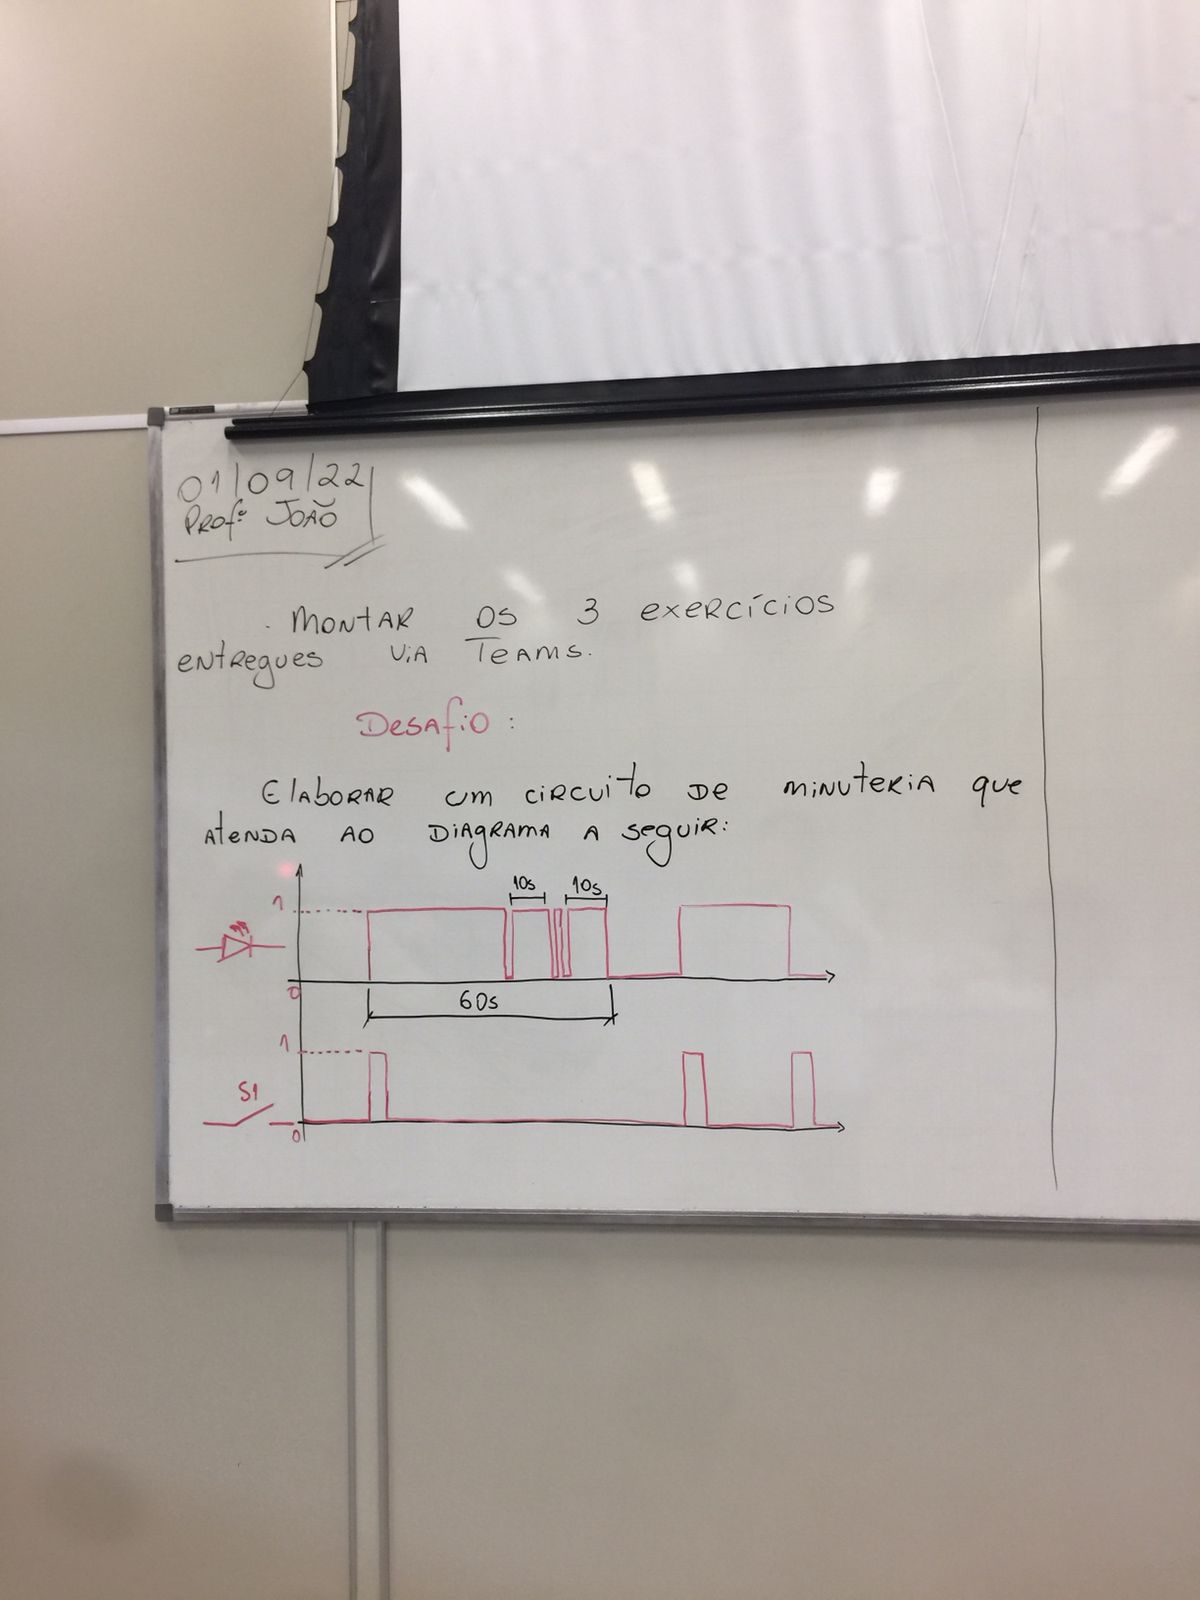 01/09/22
Profº João
. Montar os 3 exercícios
entregues via Teams.
Desafio:
Elaborar um circuito de minuteria que
atenda ao diagrama a seguir:
10s 10s
1
0
60s
1
S1
0